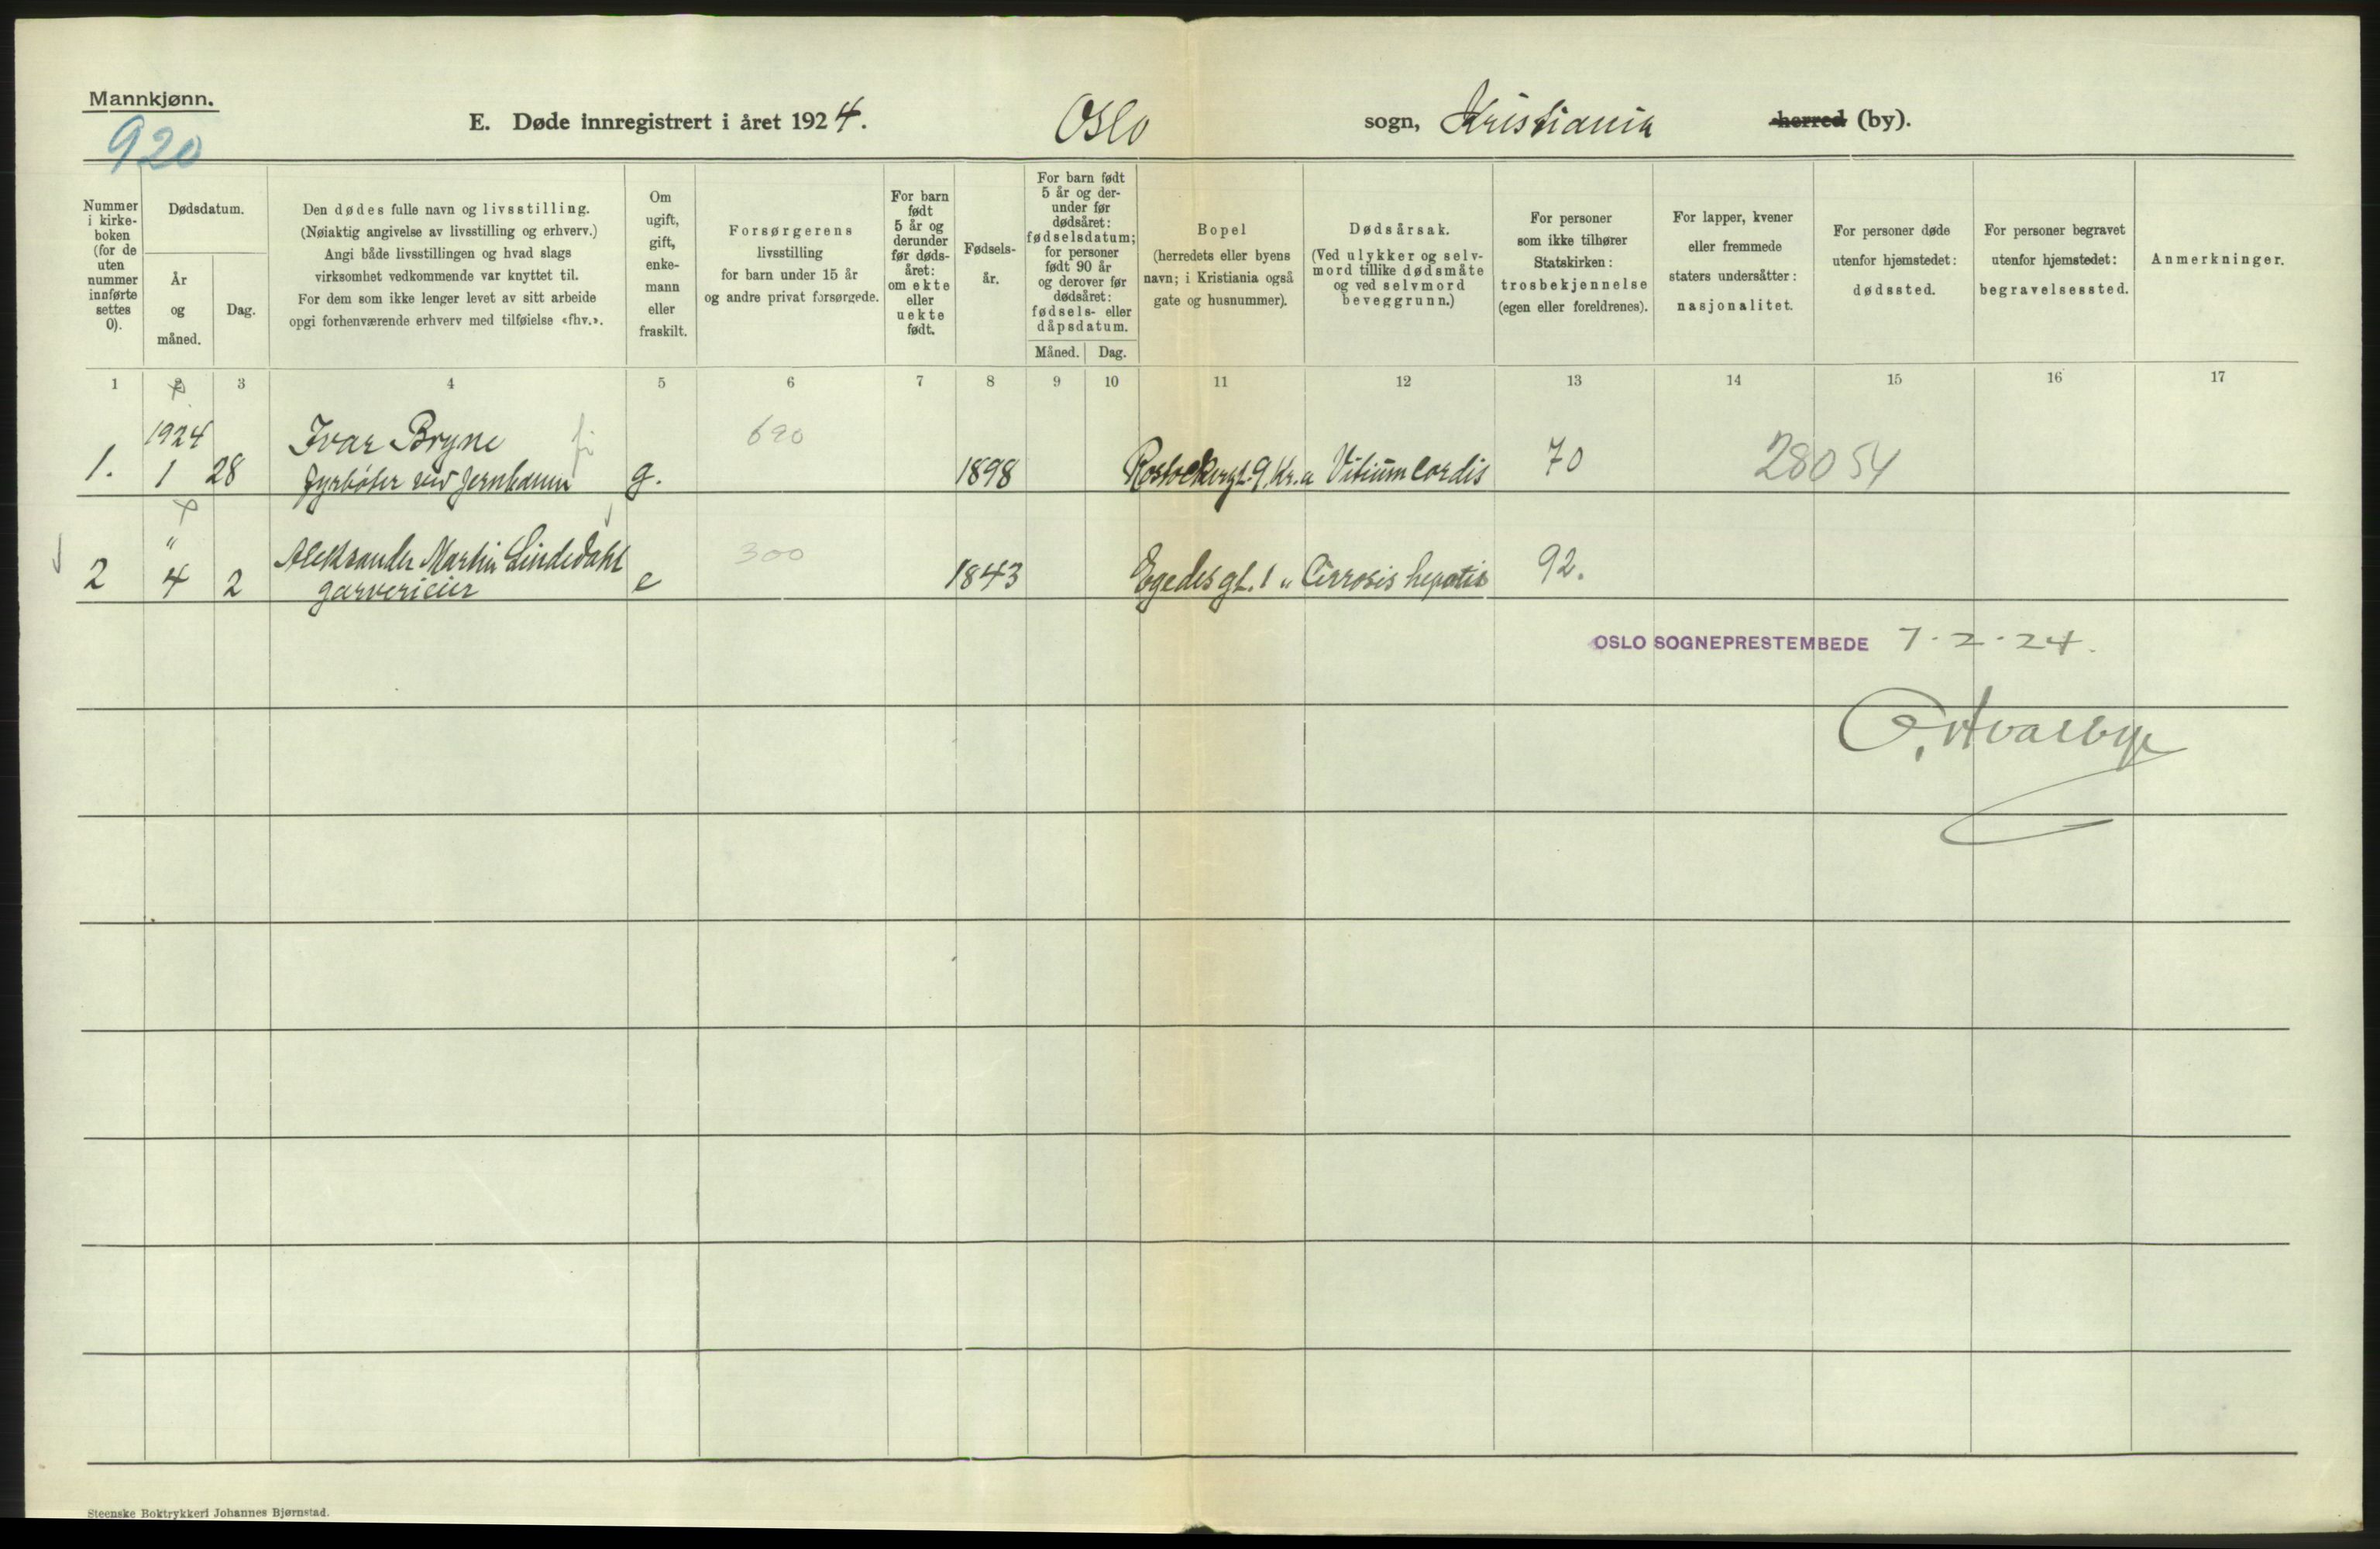 Mannkjønn.
920
E. Døde innregistrert i året 1924. Oslo sogn, Kristiania herred (by).
Nummer i kirke- boken (for de uten nummer innførte settes 0).
Dødsdatum.
År og måned.
Dag.
Den dødes fulle navn og livsstilling.
(Nøiaktig angivelse av livsstilling og erhverv.)
Angi både livsstillingen og hvad slags
virksomhet vedkommende var knyttet til.
For dem som ikke lenger levet av sitt arbeide
opgi forhenværende erhverv med tilføielse «fhv.».
Om
ugift,
gift,
enke-
mann
eller
fraskilt.
Forsørgerens
livsstilling
for barn under 15 år
og andre privat forsørgede.
For barn
født
5 år og
derunder
før døds-
året:
om ekte
eller
uekte
født.
Fødsels-
år.
For barn født
5 år og der-
under før
dødsåret:
fødselsdatum;
for personer
født 90 år
og derover før
dødsåret:
fødsels- eller
dåpsdatum.
Måned. Dag.
Bopel
(herredets eller byens
navn; i Kristiania også
gate og husnummer).
Dødsårsak.
(Ved ulykker og selv-
mord tillike dødsmåte
og ved selvmord
beveggrunn.)
For personer
som ikke tilhører
Statskirken:
trosbekjennelse
(egen eller foreldrenes).
For lapper, kvener
eller fremmede
staters undersåtter:
nasjonalitet.
For personer døde
utenfor hjemstedet:
dødssted.
For personer begravet
utenfor hjemstedet:
begravelsessted.
Anmerkninger.
1 2 3 4 5 6 7 8 9 10 11 12 13 14 15 16 17
1924 Ivar Bryne 690
1. 1 28 Fyrbøter ved Jernbanen g. 1898 Rostockergt. 9, Kr.a Vitium Cordis 70 28054
" Aleksander Martin Lindedahl 300
2 4 2 garverieier e 1843 Egedes gt. 1 " Cirrosis hepatis 92.
OSLO SOGNEPRESTEMBEDE 7-2-24.
Steenske Boktrykkeri Johannes Bjørnstad.